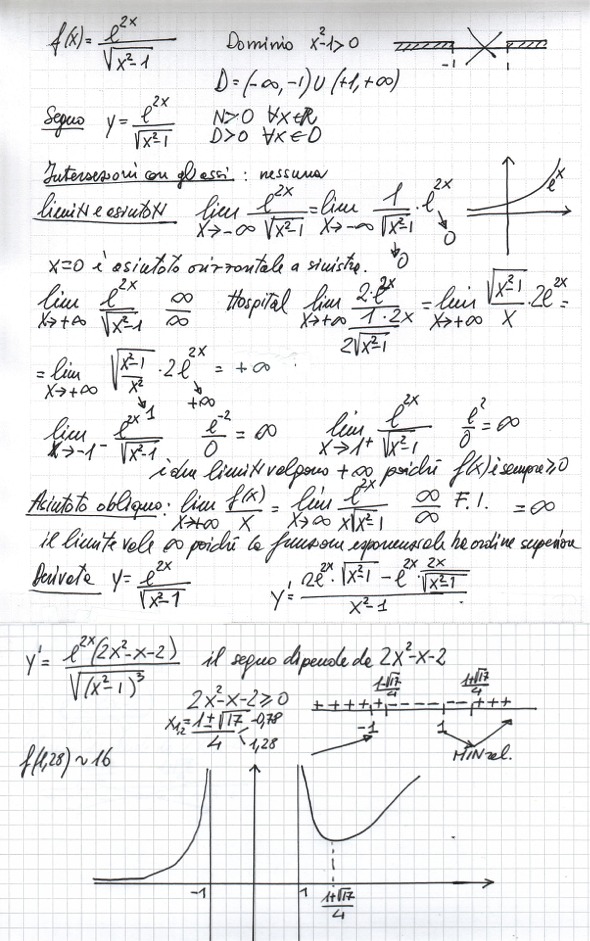 f(x) = e^{2x} / √(x²-1)   Dominio x²-1>0   -1   1
D = (-∞, -1) ∪ (+1, +∞)
Segno y = e^{2x} / √(x²-1)   N>0 ∀x∈R
D>0 ∀x∈D
Intersezioni con gli assi : nessuna
limiti e asintoti   lim x→-∞ e^{2x} / √(x²-1) = lim x→-∞ 1/√(x²-1) · e^{2x}   e^x
0   0
x=0 è asintoto orizzontale a sinistra.
lim x→+∞ e^{2x} / √(x²-1)   ∞/∞   Hospital   lim x→+∞ 2·e^{2x} / (1·2x / 2√(x²-1)) = lim x→+∞ √(x²-1) / x · 2e^{2x} =
= lim x→+∞ √((x²-1)/x²) · 2e^{2x} = +∞
1   +∞
lim x→-1⁻ e^{2x} / √(x²-1)   e^{-2}/0 = ∞   lim x→1⁺ e^{2x} / √(x²-1)   e²/0 = ∞
i due limiti valgono +∞ poiché f(x) è sempre ≥0
Asintoto obliquo : lim x→+∞ f(x)/x = lim x→∞ e^{2x} / x√(x²-1)   ∞/∞   F.I.   = ∞
il limite vale ∞ poiché la funzione esponenziale ha ordine superiore
Derivata y = e^{2x} / √(x²-1)   y' = (2e^{2x} · √(x²-1) - e^{2x} · 2x/√(x²-1)) / (x²-1)
y' = e^{2x}(2x²-x-2) / √((x²-1)³)   il segno dipende da 2x²-x-2
2x²-x-2≥0   (1-√17)/4   (1+√17)/4
x₁,₂ = (1±√17)/4   -0,78   1,28   + + + + + - - - - - - - + + +
-1   1
MIN rel.
f(1,28) ~ 16
-1   1   (1+√17)/4